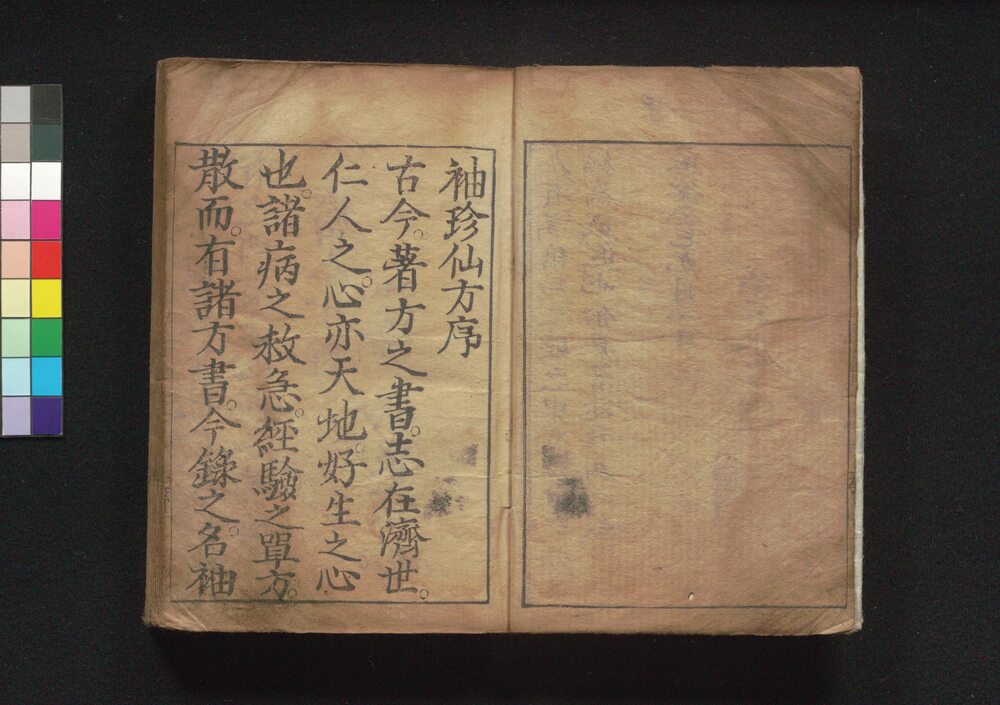 袖珍仙方序
古今。著方之書。志在濟世。
仁人之心。亦天地。好生之心
也。諸病之救急。經驗之單方。
散而。有諸方書。今錄之。名袖